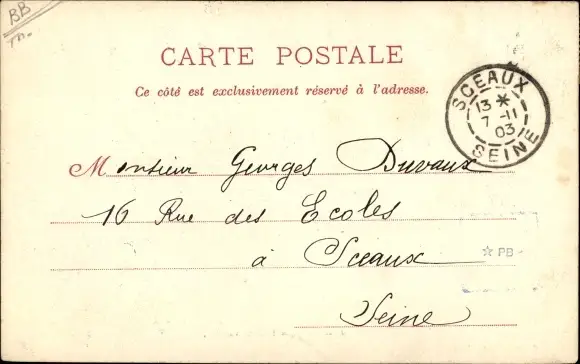 BB
CARTE POSTALE
Ce côté est exclusivement réservé à l'adresse.
SCEAUX
13 *
7 -11
03
SEINE
Monsieur Georges Duvaux
16 Rue des Ecoles
à Sceaux
☆ PB
Seine